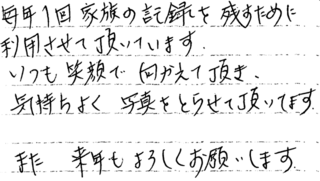 毎年1回 家族の記録を 残すために
利用させて頂いています.
いつも 笑顔で 向かえて頂き、
気持ちよく 写真をとらせて頂いてます
また 来年もよろしくお願いします